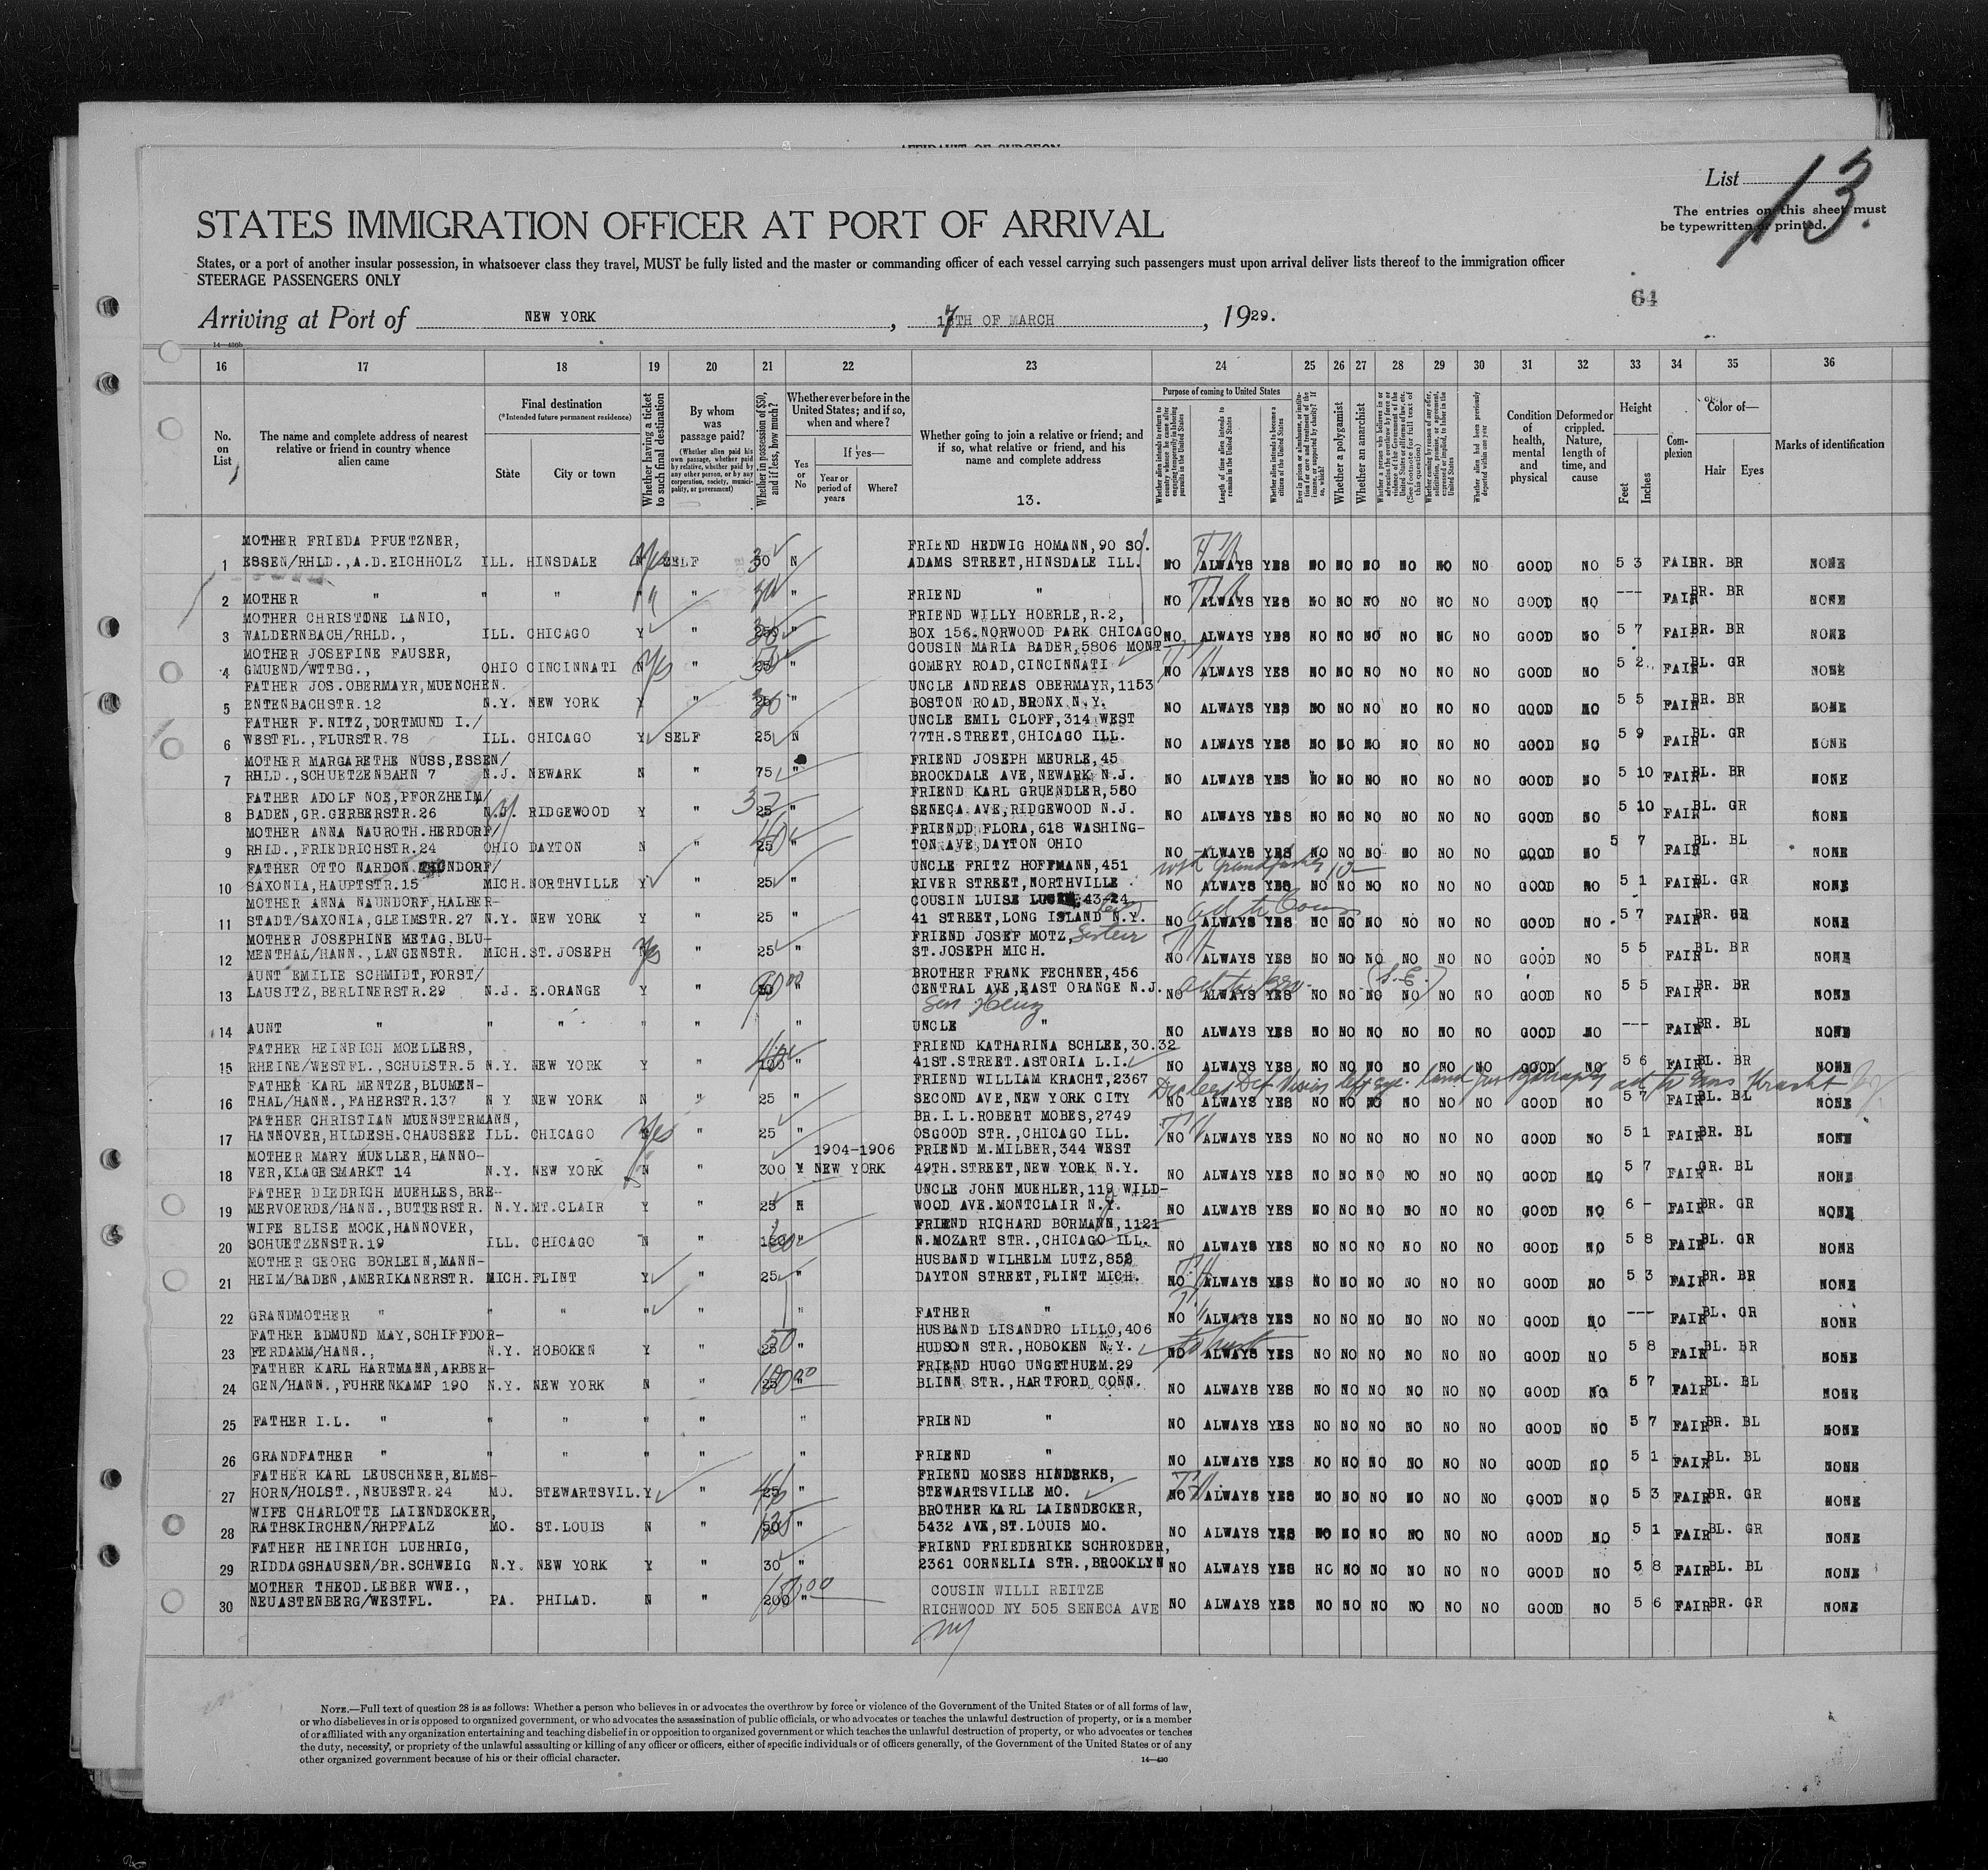 AFFIDAVIT OF SURGEON
List 13.
STATES IMMIGRATION OFFICER AT PORT OF ARRIVAL
The entries on this sheet must
be typewritten or printed.
States, or a port of another insular possession, in whatsoever class they travel, MUST be fully listed and the master or commanding officer of each vessel carrying such passengers must upon arrival deliver lists thereof to the immigration officer
STEERAGE PASSENGERS ONLY
64
Arriving at Port of NEW YORK, 17TH OF MARCH, 1929.
16 17 18 19 20 21 22 23 24 25 26 27 28 29 30 31 32 33 34 35 36
No. on List
The name and complete address of nearest relative or friend in country whence alien came
Final destination
(*Intended future permanent residence)
State City or town
Whether having a ticket to such final destination
By whom was passage paid?
(Whether alien paid his own passage, whether paid by relative, whether paid by any other person, or by any corporation, society, municipality, or government)
Whether in possession of $50, and if less, how much?
Whether ever before in the United States; and if so, when and where?
Yes or No
If yes—
Year or period of years Where?
Whether going to join a relative or friend; and if so, what relative or friend, and his name and complete address
13.
Purpose of coming to United States
Length of time alien intends to remain in the United States
Whether alien intends to become a citizen of the United States
Whether a polygamist
Whether an anarchist
Condition of health, mental and physical
Deformed or crippled. Nature, length of time, and cause
Height
Feet Inches
Complexion
Color of—
Hair Eyes
Marks of identification
MOTHER FRIEDA PFUETZNER, FRIEND HEDWIG HOMANN,90 SO.
1 ESSEN/RHLD.,A.D.EICHHOLZ ILL. HINSDALE Yes SELF 50 N ADAMS STREET,HINSDALE ILL. NO ALWAYS YES NO NO NO NO NO NO GOOD NO 5 3 FAIR BR. BR NONE
2 MOTHER " " " " " " FRIEND " NO ALWAYS YES NO NO NO NO NO NO GOOD NO --- FAIR BR. BR NONE
MOTHER CHRISTINE LANIO, FRIEND WILLY HOERLE,R.2,
3 WALDERNBACH/RHLD., ILL. CHICAGO Y " " BOX 156.NORWOOD PARK CHICAGO NO ALWAYS YES NO NO NO NO NO NO GOOD NO 5 7 FAIR BR. BR NONE
MOTHER JOSEFINE FAUSER, COUSIN MARIA BADER,5806 MONT-
4 GMUEND/WTTBG., OHIO CINCINNATI Yes " 25 " GOMERY ROAD,CINCINNATI NO ALWAYS YES NO NO NO NO NO NO GOOD NO 5 2 FAIR BL. GR NONE
FATHER JOS.OBERMAYR,MUENCHEN. UNCLE ANDREAS OBERMAYR,1153
5 ENTENBACHSTR.12 N.Y. NEW YORK Y " " BOSTON ROAD,BRONX N.Y. NO ALWAYS YES NO NO NO NO NO NO GOOD NO 5 5 FAIR BR. BR NONE
FATHER F.NITZ,DORTMUND I./ UNCLE EMIL CLOFF,314 WEST
6 WESTFL.,FLURSTR.78 ILL. CHICAGO Y SELF 25 N 77TH.STREET,CHICAGO ILL. NO ALWAYS YES NO NO NO NO NO NO GOOD NO 5 9 FAIR BL. GR NONE
MOTHER MARGARETHE NUSS,ESSEN/ FRIEND JOSEPH MEURLE,45
7 RHLD.,SCHUETZENBAHN 7 N.J. NEWARK N " 75 " BROCKDALE AVE,NEWARK N.J. NO ALWAYS YES NO NO NO NO NO NO GOOD NO 5 10 FAIR BL. BR NONE
FATHER ADOLF NOE,PFORZHEIM/ FRIEND KARL GRUENDLER,550
8 BADEN,GR.GERBERSTR.26 RIDGEWOOD Y " 25 " SENECA AVE,RIDGEWOOD N.J. NO ALWAYS YES NO NO NO NO NO NO GOOD NO 5 10 FAIR BL. GR NONE
MOTHER ANNA NAUROTH.HERDORF/ FRIENDD FLORA,618 WASHING-
9 RHLD.,FRIEDRICHSTR.24 OHIO DAYTON N " 25 " TON AVE,DAYTON OHIO NO ALWAYS YES NO NO NO NO NO NO GOOD NO 5 7 FAIR BL. BL NONE
FATHER OTTO NARDON UNCLE FRITZ HOFFMANN,451
10 SAXONIA,HAUPTSTR.15 MICH.NORTHVILLE Y " 25 " RIVER STREET,NORTHVILLE NO ALWAYS YES NO NO NO NO NO NO GOOD NO 5 1 FAIR BL. GR NONE
MOTHER ANNA NAUNDORF,HALBER- COUSIN LUISE 43-24
11 STADT/SAXONIA,GLEIMSTR.27 N.Y. NEW YORK Y " 25 " 41 STREET,LONG ISLAND N.Y. NO ALWAYS YES NO NO NO NO NO NO GOOD NO 5 7 FAIR BR. GR NONE
MOTHER JOSEPHINE METAG,BLU- FRIEND JOSEF MOTZ,
12 MENTHAL/HANN.,LANGENSTR. MICH.ST.JOSEPH Yes " 25 " ST.JOSEPH MICH. NO ALWAYS YES NO NO NO NO NO NO GOOD NO 5 5 FAIR BL. BR NONE
AUNT EMILIE SCHMIDT,FORST/ BROTHER FRANK FECHNER,456
13 LAUSITZ,BERLINERSTR.29 N.J. E.ORANGE Y " 90 00 " CENTRAL AVE,EAST ORANGE N.J. NO ALWAYS YES NO NO NO NO NO NO GOOD NO 5 5 FAIR BR. BR NONE
14 AUNT " " " " " " UNCLE " NO ALWAYS YES NO NO NO NO NO NO GOOD NO --- FAIR BR. BL NONE
FATHER HEINRICH MOELLERS, FRIEND KATHARINA SCHLEE,30.32
15 RHEINE/WESTFL.,SCHULSTR.5 N.Y. NEW YORK Y " " 41ST.STREET.ASTORIA L.I. NO ALWAYS YES NO NO NO NO NO NO GOOD NO 5 6 FAIR BL. BR NONE
FATHER KARL MENTZE,BLUMEN- FRIEND WILLIAM KRACHT,2367
16 THAL/HANN.,FAHERSTR.137 N Y NEW YORK N " 25 " SECOND AVE,NEW YORK CITY NO ALWAYS YES NO NO NO NO NO NO GOOD NO 5 7 FAIR BL. BL NONE
FATHER CHRISTIAN MUENSTERMANN, BR.I.L.ROBERT MOBES,2749
17 HANNOVER,HILDESH.CHAUSSEE ILL. CHICAGO Yes " 25 " OSGOOD STR.,CHICAGO ILL. NO ALWAYS YES NO NO NO NO NO NO GOOD NO 5 1 FAIR BR. BL NONE
MOTHER MARY MUELLER,HANNO- 1904-1906 FRIEND M.MILBER,344 WEST
18 VER,KLAGESMARKT 14 N.Y. NEW YORK N " 300 Y NEW YORK 49TH.STREET,NEW YORK N.Y. NO ALWAYS YES NO NO NO NO NO NO GOOD NO 5 7 FAIR GR. BL NONE
FATHER DIEDRICH MUEHLES,BRE- UNCLE JOHN MUEHLER,119 WILD-
19 MERVOERDE/HANN.,BUTTERSTR. N.Y.MT.CLAIR Y " 25 N WOOD AVE.MONTCLAIR N.Y. NO ALWAYS YES NO NO NO NO NO NO GOOD NO 6 - FAIR BR. GR NONE
WIFE ELISE MOCK,HANNOVER, FRIEND RICHARD BORMANN,1121
20 SCHUETZENSTR.19 ILL. CHICAGO N " " N.MOZART STR.,CHICAGO ILL. NO ALWAYS YES NO NO NO NO NO NO GOOD NO 5 8 FAIR BL. GR NONE
MOTHER GEORG BORLEIN,MANN- HUSBAND WILHELM LUTZ,852
21 HEIM/BADEN,AMERIKANERSTR. MICH.FLINT Y " 25 " DAYTON STREET,FLINT MICH. NO ALWAYS YES NO NO NO NO NO NO GOOD NO 5 3 FAIR BR. BR NONE
22 GRANDMOTHER " " " " " " FATHER " NO ALWAYS YES NO NO NO NO NO NO GOOD NO --- FAIR BL. GR NONE
FATHER EDMUND MAY,SCHIFFDOR- HUSBAND LISANDRO LILLO,406
23 FERDAMM/HANN., N.Y. HOBOKEN Y " 50 " HUDSON STR.,HOBOKEN N.Y. NO ALWAYS YES NO NO NO NO NO NO GOOD NO 5 8 FAIR BL. BR NONE
FATHER KARL HARTMANN,ARBER- FRIEND HUGO UNGETHUEM.29
24 GEN/HANN.,FUHRENKAMP 190 N.Y. NEW YORK N " 100 00 " BLINN STR.,HARTFORD CONN. NO ALWAYS YES NO NO NO NO NO NO GOOD NO 5 7 FAIR BL. BL NONE
25 FATHER I.L. " " " " " " FRIEND " NO ALWAYS YES NO NO NO NO NO NO GOOD NO 5 7 FAIR BR. BL NONE
26 GRANDFATHER " " " " " " FRIEND " NO ALWAYS YES NO NO NO NO NO NO GOOD NO 5 1 FAIR BL. BL NONE
FATHER KARL LEUSCHNER,ELMS- FRIEND MOSES HINDERKS,
27 HORN/HOLST.,NEUESTR.24 MO. STEWARTSVIL.Y " 25 " STEWARTSVILLE MO. NO ALWAYS YES NO NO NO NO NO NO GOOD NO 5 3 FAIR BR. GR NONE
WIFE CHARLOTTE LAIENDECKER, BROTHER KARL LAIENDECKER,
28 RATHSKIRCHEN/RHPFALZ MO. ST.LOUIS N " 50 " 5432 AVE,ST.LOUIS MO. NO ALWAYS YES NO NO NO NO NO NO GOOD NO 5 1 FAIR BL. GR NONE
FATHER HEINRICH LUEHRIG, FRIEND FRIEDERIKE SCHROEDER,
29 RIDDAGSHAUSEN/BR.SCHWEIG N.Y. NEW YORK Y " 30 " 2361 CORNELIA STR.,BROOKLYN NO ALWAYS YES NO NO NO NO NO NO GOOD NO 5 8 FAIR BL. BL NONE
MOTHER THEOD.LEBER WWE., COUSIN WILLI REITZE
30 NEUASTENBERG/WESTFL. PA. PHILAD. N " 200 " RICHWOOD NY 505 SENECA AVE NO ALWAYS YES NO NO NO NO NO NO GOOD NO 5 6 FAIR BR. GR NONE
NY
NOTE.—Full text of question 28 is as follows: Whether a person who believes in or advocates the overthrow by force or violence of the Government of the United States or of all forms of law,
or who disbelieves in or is opposed to organized government, or who advocates the assassination of public officials, or who advocates or teaches the unlawful destruction of property, or is a member
of or affiliated with any organization entertaining and teaching disbelief in or opposition to organized government or which teaches the unlawful destruction of property, or who advocates or teaches
the duty, necessity, or propriety of the unlawful assaulting or killing of any officer or officers, either of specific individuals or of officers generally, of the Government of the United States or of any
other organized government because of his or their official character.
14—430